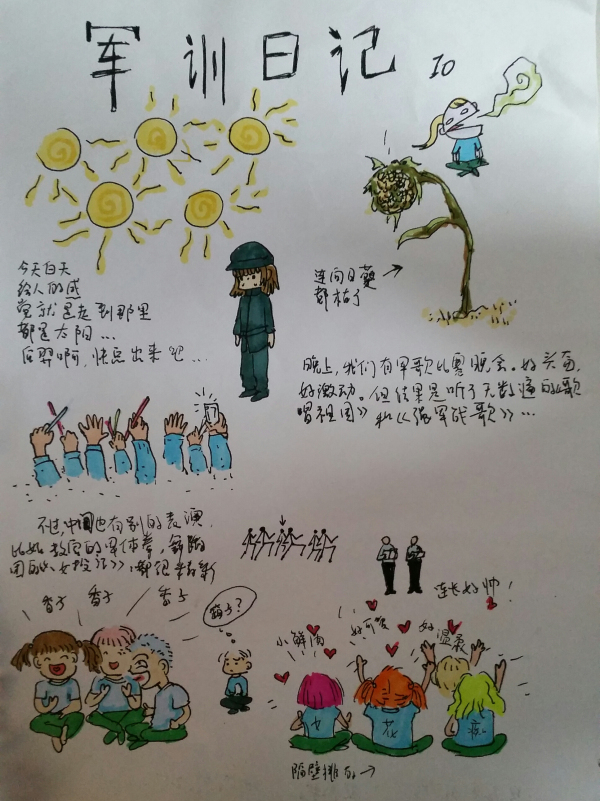 军训日记 10
今天白天
给人的感
觉就是走到那里
都是太阳...
后羿啊,快点出来吧...
连向日葵
都枯了
晚上,我们有军歌比赛晚会。好兴奋,
好激动。但结果是听了无数遍的《歌
唱祖国》和《强军战歌》...
不过,中间也有别的表演,
比如教官的军体拳,舞蹈
团的《女
都很精彩
香子 香子 香子
连长好帅!
小鲜肉
好可爱
好温柔
女 花 痴
隔壁排的→